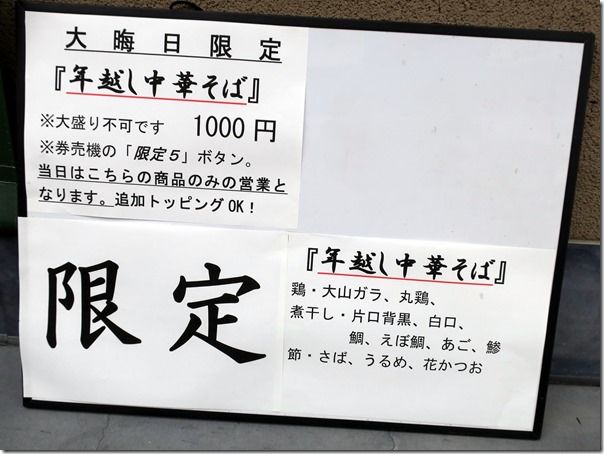 大晦日限定
『年越し中華そば』
※大盛り不可です 1000円
※券売機の「限定5」ボタン。
当日はこちらの商品のみの営業と
なります。追加トッピングOK!
限定
『年越し中華そば』
鶏・大山ガラ、丸鶏、
煮干し・片口背黒、白口、
鯛、えぼ鯛、あご、鯵
節・さば、うるめ、花かつお